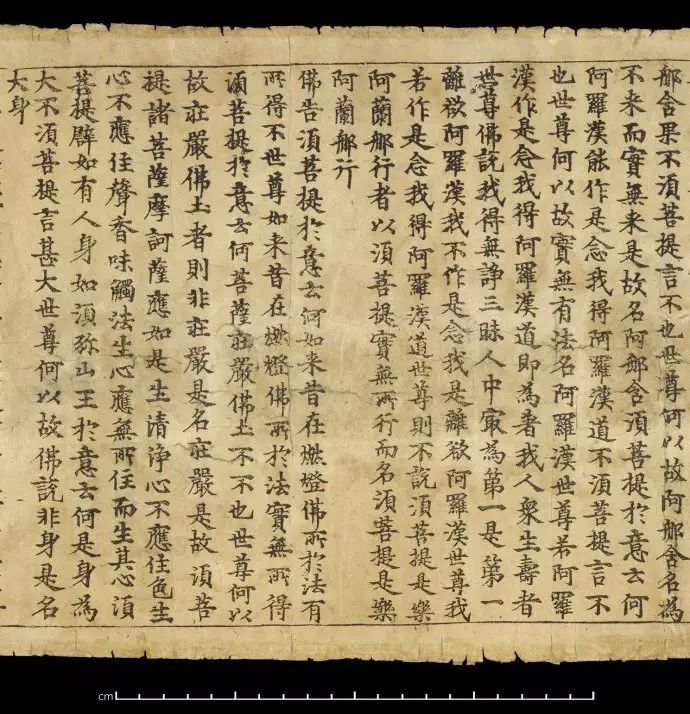 郍含果不湏菩提言不也世尊何以故阿郍含名為
不来而實無来是故名阿郍含湏菩提於意云何
阿羅漢能作是念我得阿羅漢道不湏菩提言不
也世尊何以故實無有法名阿羅漢世尊若阿羅
漢作是念我得阿羅漢道即為著我人衆生壽者
世尊佛說我得無諍三昧人中㝡為第一是第一
離欲阿羅漢我不作是念我是離欲阿羅漢世尊我
若作是念我得阿羅漢道世尊則不說湏菩提是樂
阿蘭郍行者以湏菩提實無所行而名湏菩提是樂
阿蘭郍行
佛告湏菩提於意云何如来昔在燃燈佛所於法有
所得不世尊如来昔在燃燈佛所於法實無所得
湏菩提於意云何菩薩莊嚴佛土不不也世尊何以
故莊嚴佛土者則非莊嚴是名莊嚴是故湏菩
提諸菩薩摩訶薩應如是生清淨心不應住色生
心不應住聲香味觸法生心應無所住而生其心湏
菩提譬如有人身如湏弥山王於意云何是身為
大不湏菩提言甚大世尊何以故佛說非身是名
大身
cm